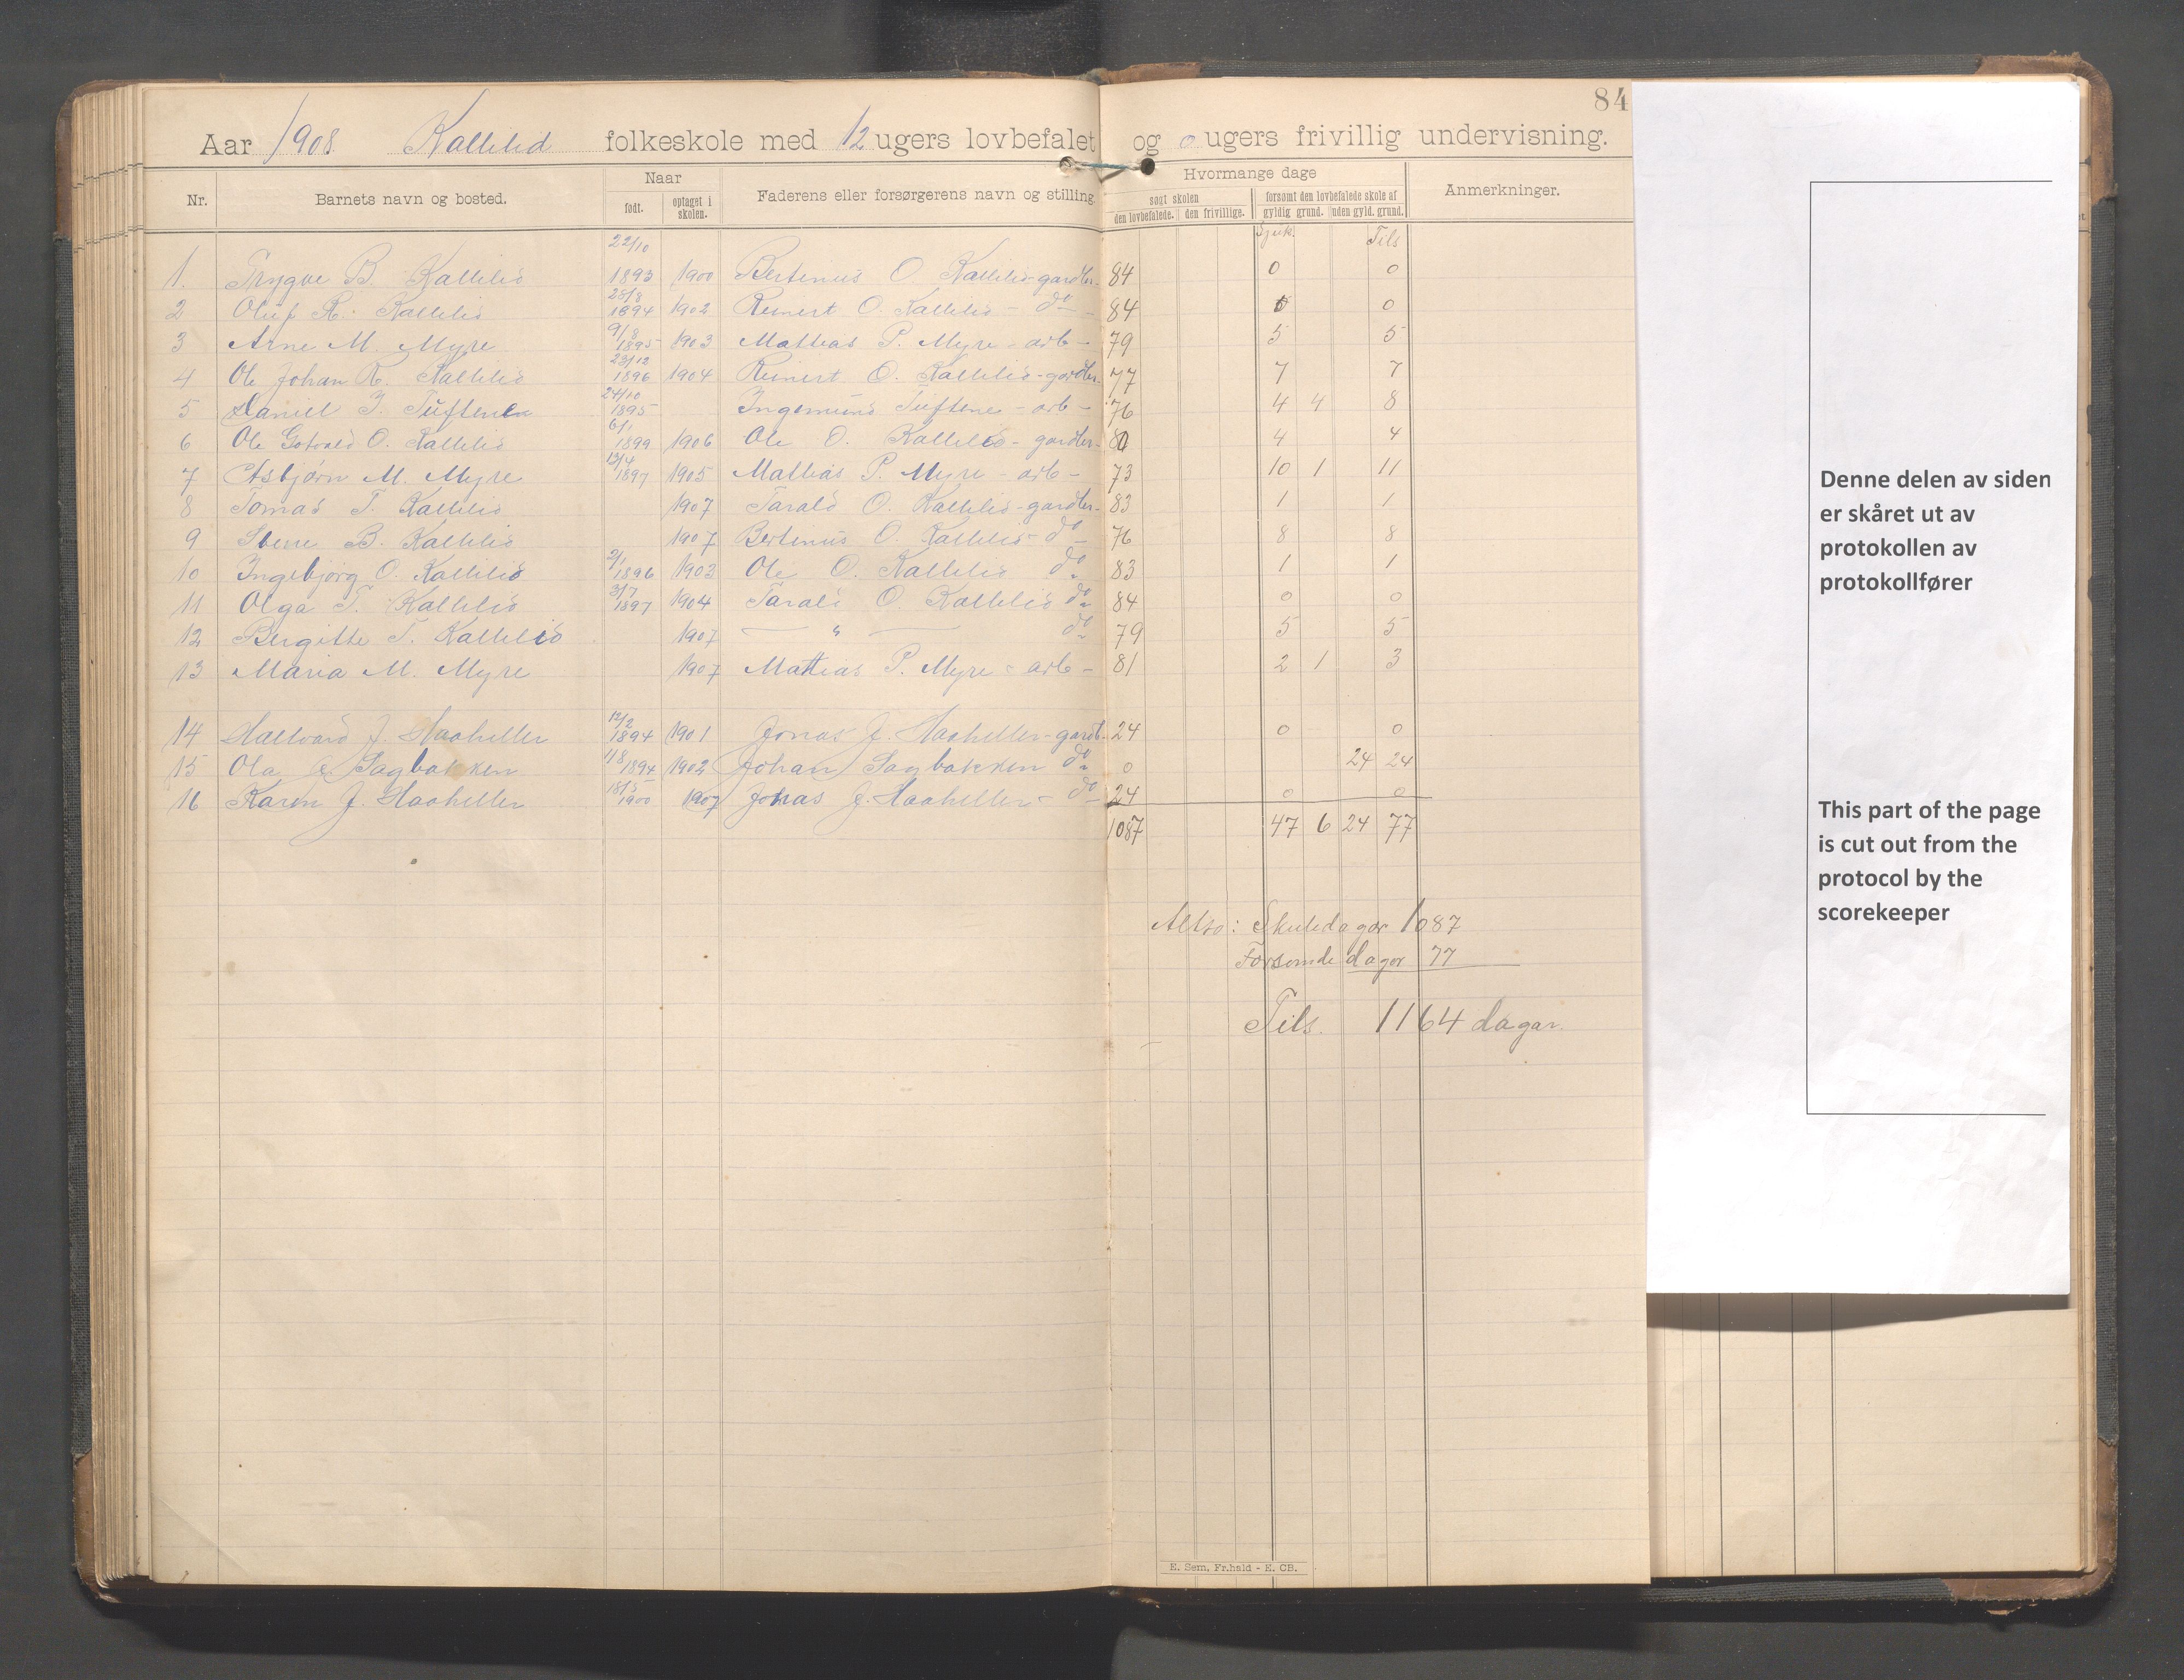 84
Aar 1908 Kallelid folkeskole med 12 ugers lovbefalet og 0 ugers frivillig undervisning.
Nr. Barnets navn og bosted. Naar født. optaget i skolen. Faderens eller forsørgerens navn og stilling. Hvormange dage søgt skolen den lovbefalede. den frivillige. forsømt den lovbefalede skole af gyldig grund. uden gyld. grund. Anmerkninger.
Sjuk. Tils
1. Trygve B. Kallelid 22/10 1893 1900 Bertinius O. Kallelid - gardbr. 84 0 0
2 Oluf R. Kallelid 28/8 1894 1902 Reinert O. Kallelid - do - 84 0 0
3 Arne M. Myre 9/8 1895 1903 Mathias P. Myre - arb - 79 5 5
4 Ole Johan R. Kallelid 23/12 1896 1904 Reinert O. Kallelid - gardbr. 77 7 7
5 Daniel I. Tuftene 24/10 1895 Ingemund Tuftene - arb - 76 4 4 8
6 Ole Gotvald O. Kallelid 6/1 1899 1906 Ole O. Kallelid - gardbr - 80 4 4
7 Asbjørn M. Myre 13/4 1897 1905 Mathias P. Myre - arb - 73 10 1 11
8 Tomas T. Kallelid 1907 Tarald O. Kallelid - gardbr - 83 1 1
9 B. Kallelid 1907 Bertinius O. Kallelid - do - 76 8 8
10 Ingebjørg O. Kallelid 2/1 1896 1903 Ole O. Kallelid do 83 1 1
11 Olga T. Kallelid 3/7 1897 1904 Tarald O. Kallelid do 84 0 0
12 Bergitte T. Kallelid 1907 — " — do 79 5 5
13 Maria M. Myre 1907 Mattias P. Myre - arb - 81 2 1 3
14 Hallvard J. Haaheller 12/2 1894 1901 Jonas J. Haaheller - gardb. 24 0 0
15 Ola J. Sagbakken 11/8 1894 1902 Johan Sagbakken do 0 24 24
16 Karen J. Haaheller 18/5 1900 1907 Jonas J. Haaheller - do - 24 0 0
1087 47 6 24 77
Altso: Skuledagar 1087
Forsømde dagar 77
Tils. 1164 dagar.
E. Sem, Fr.hald - E. CB.
Denne delen av siden
er skåret ut av
protokollen av
protokollfører
This part of the page
is cut out from the
protocol by the
scorekeeper